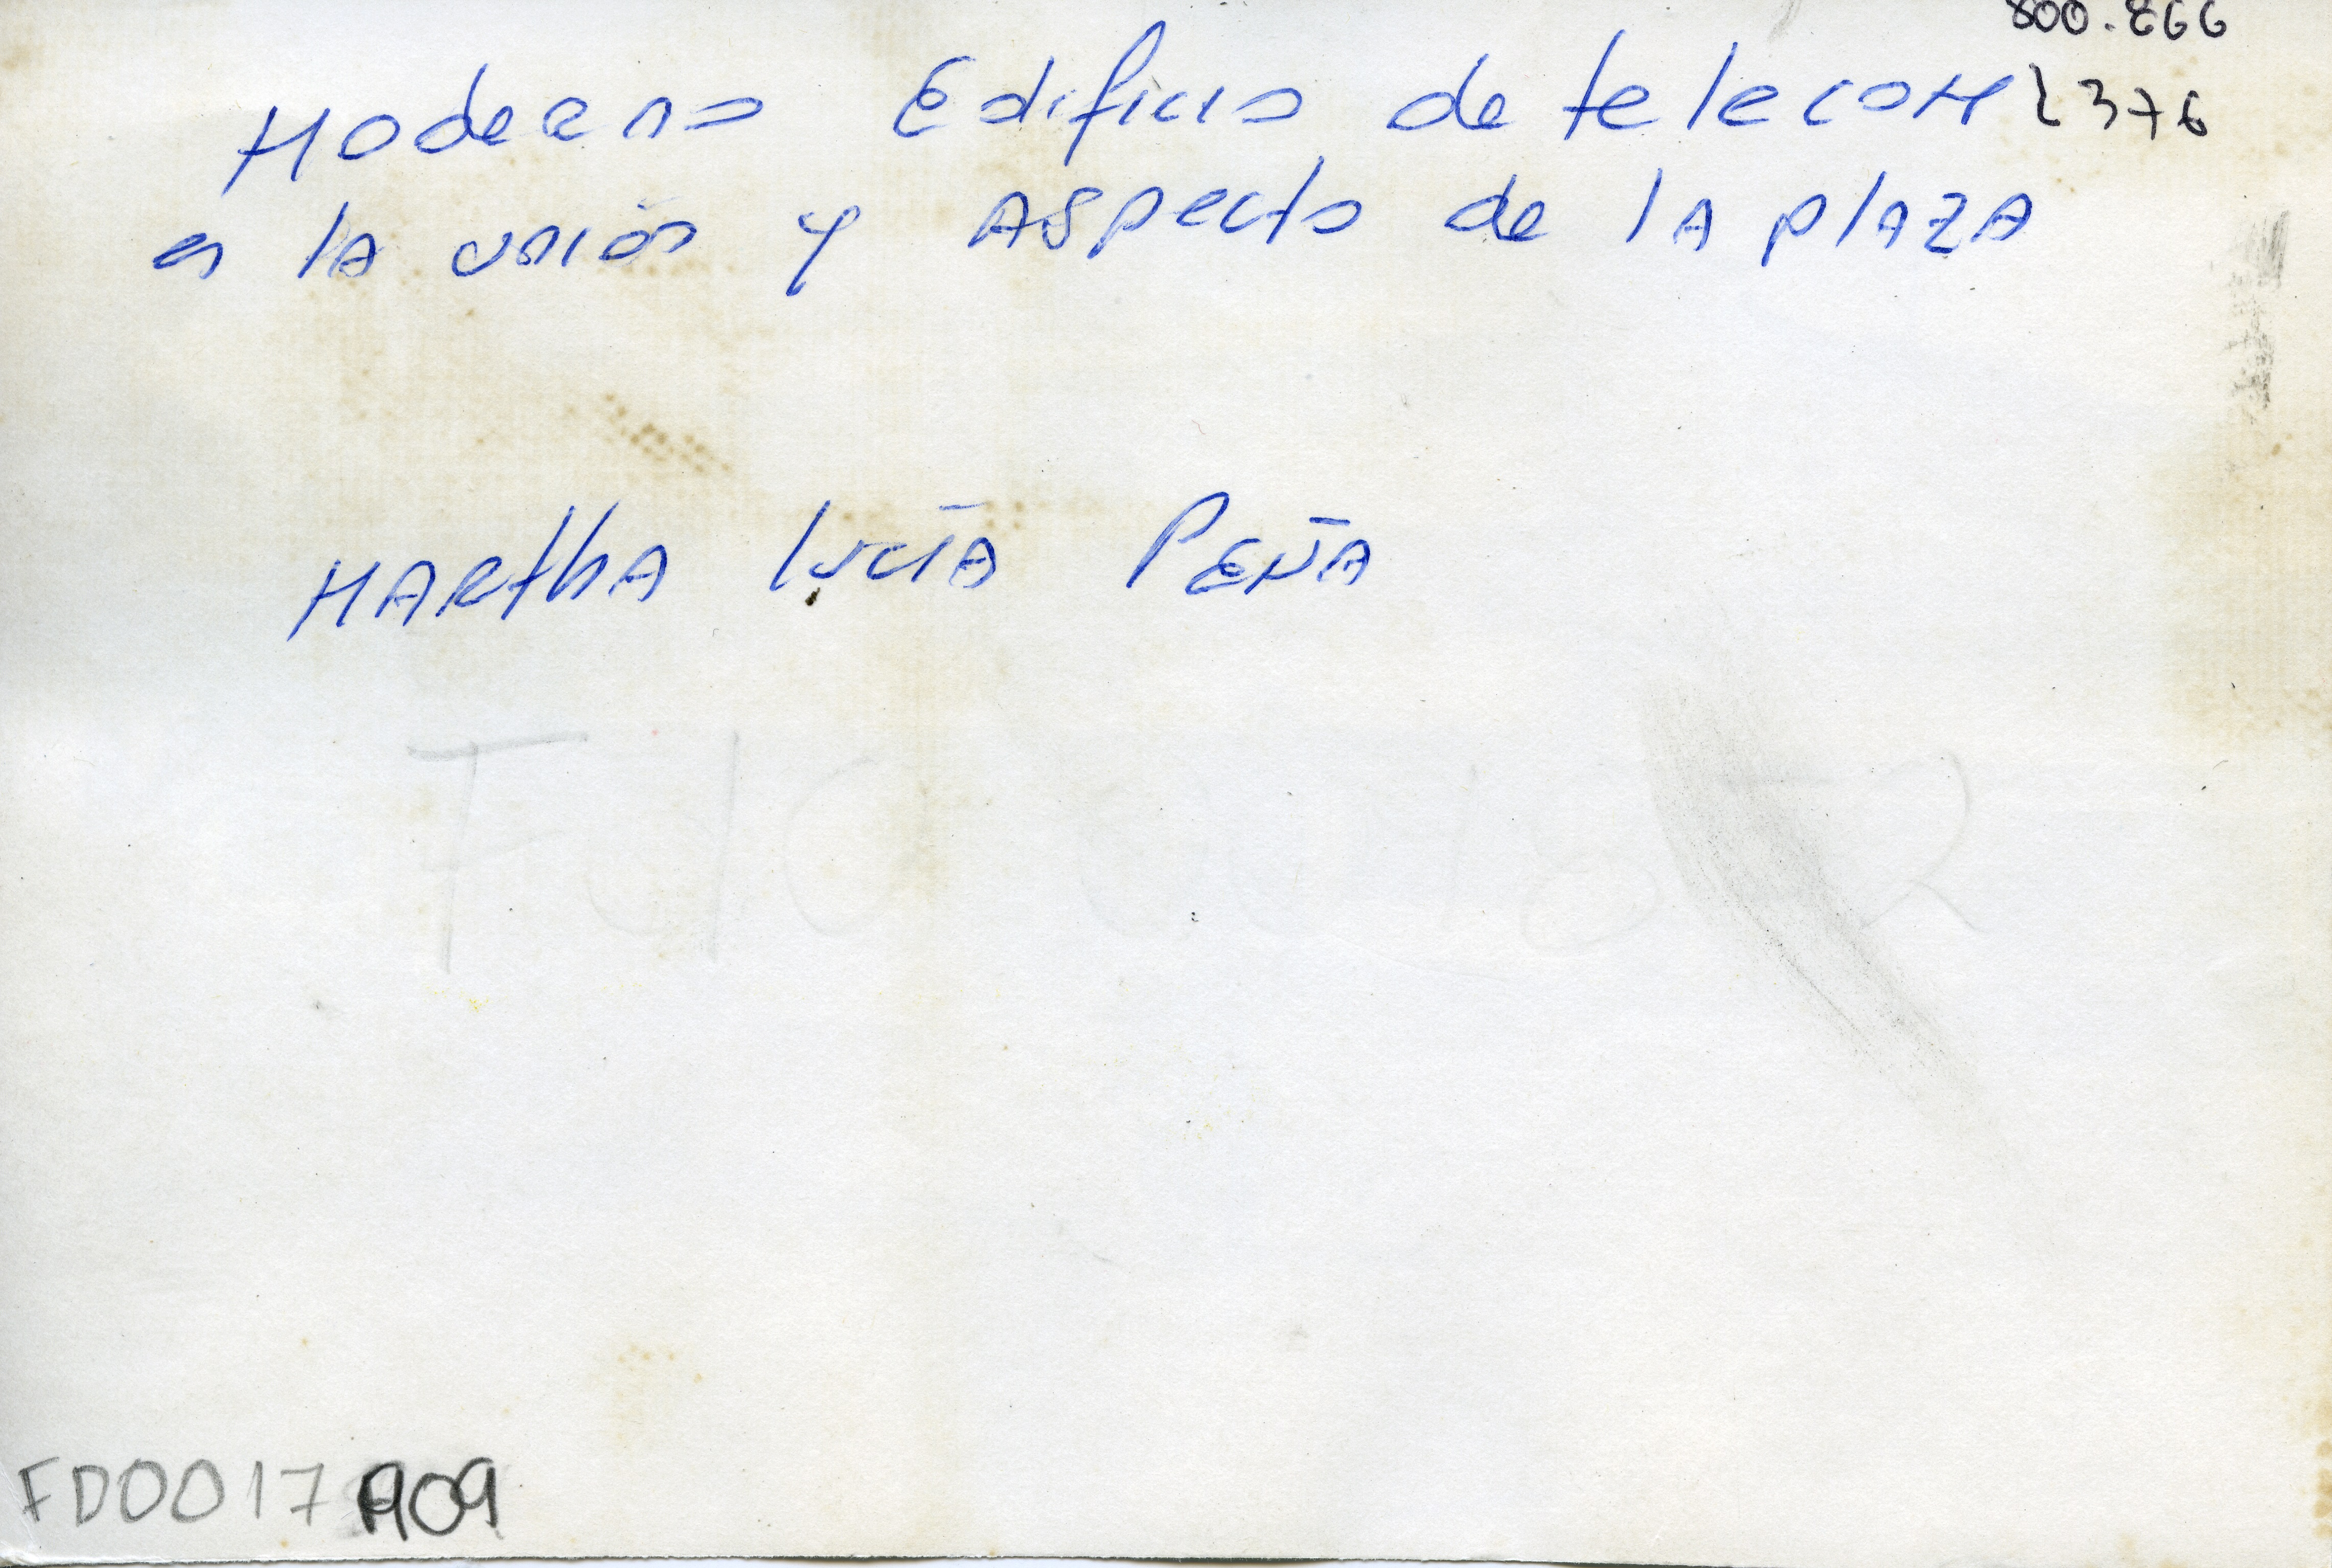 800.866
Moderno Edificio de telecom 2376
en la unión y Aspecto de la plaza
Martha Lucía Peña
FD0017909